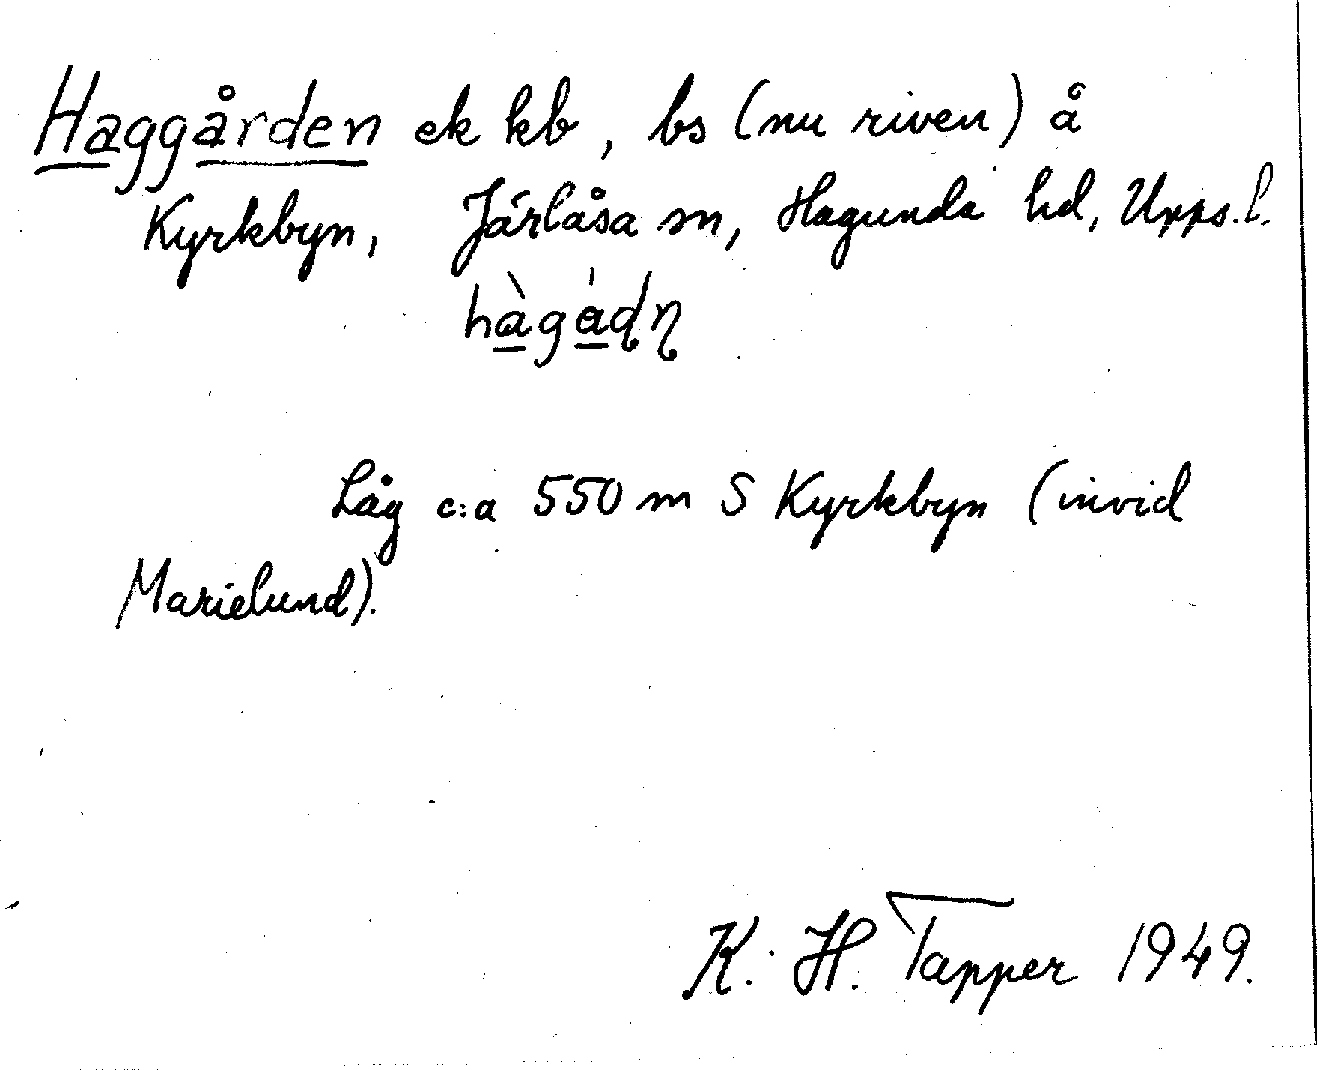 Haggården ek kb, bs (nu riven) å
Kyrkbyn, Järlåsa sn, Hagunda hd, Upps. l.
hàgádn
Låg c:a 550 m S Kyrkbyn (invid
Marielund).
K. H. Tapper 1949.